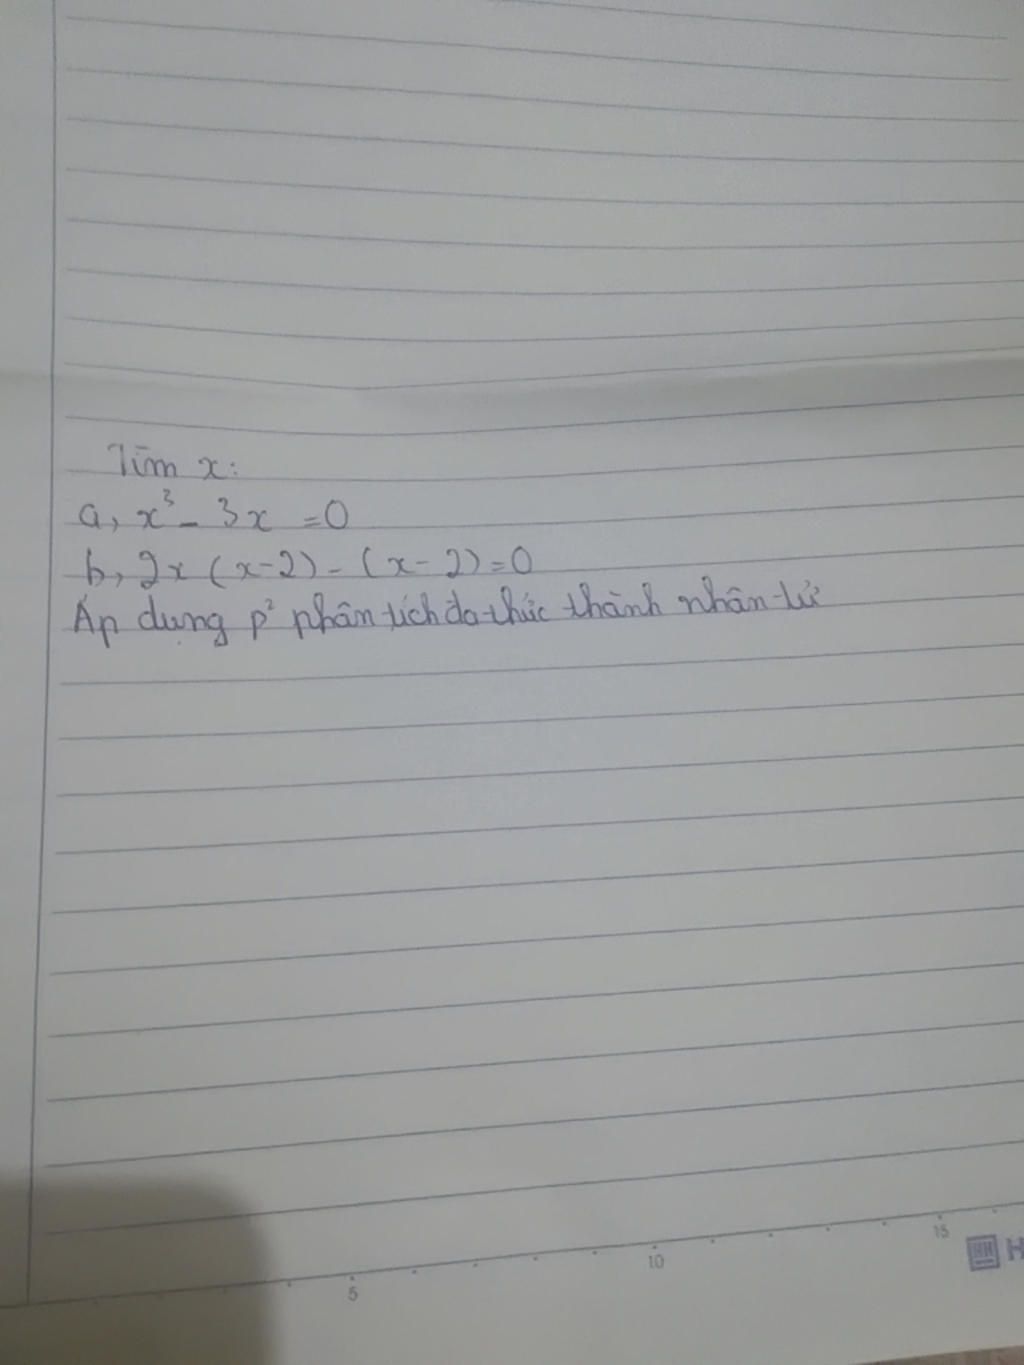 Tìm x:
a, x³ - 3x = 0
b, 2x (x-2) - (x-2) = 0
Áp dụng p² phân tích đa thức thành nhân tử
5
10
15
HH H